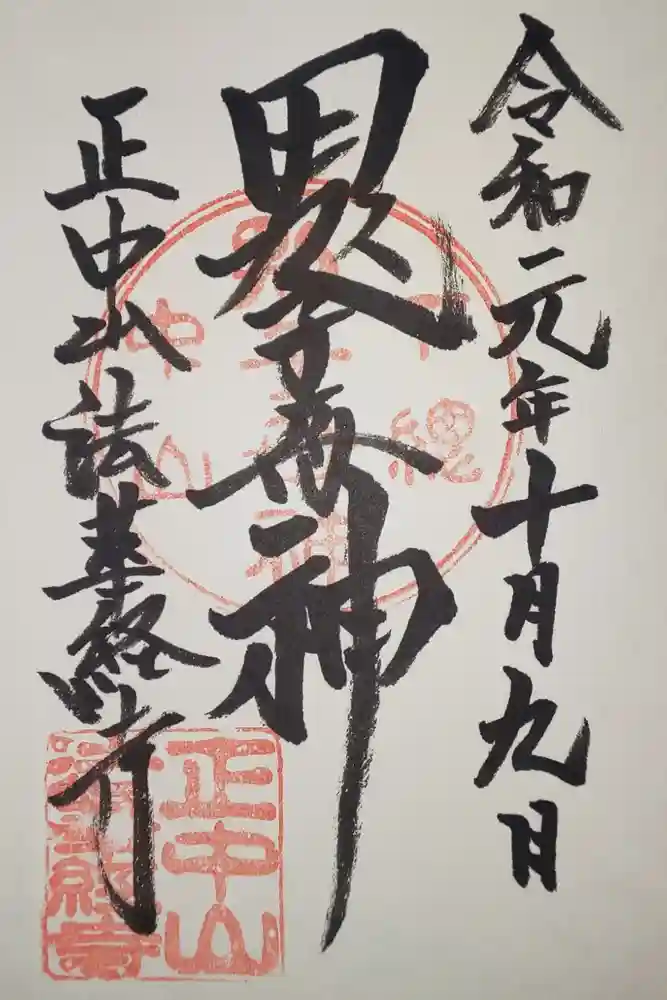 令和元年十月九日
鬼子母神
正中山法華経寺
下總
中山
正中山
法華経寺